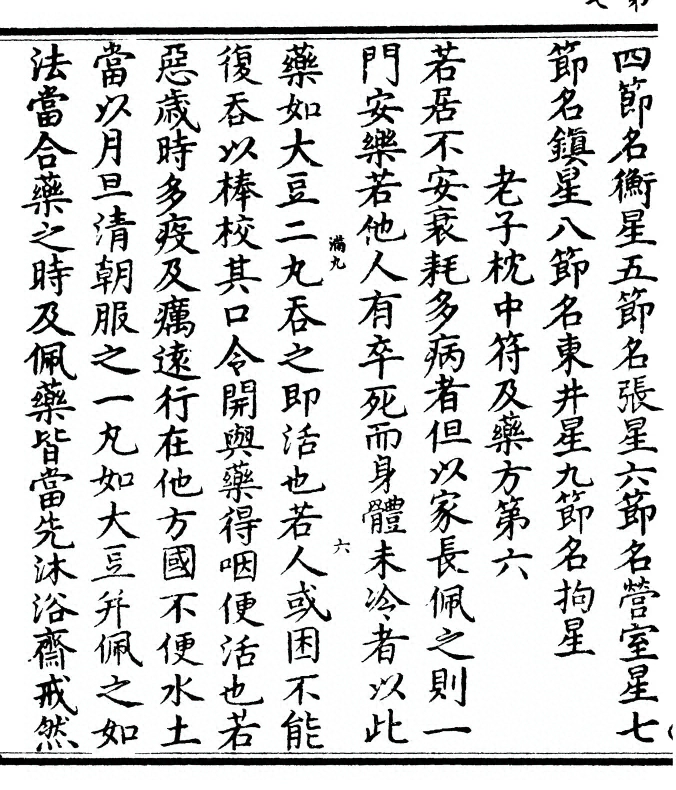 四節名衡星五節名張星六節名營室星七
節名鎮星八節名東井星九節名拘星
老子枕中符及藥方第六
若居不安衰耗多病者但以家長佩之則一
門安樂若他人有卒死而身體未冷者以此
滿九
六
藥如大豆二丸吞之即活也若人或困不能
復吞以棒校其口令開與藥得咽便活也若
惡歲時多疫及癘遠行在他方國不便水土
當以月旦清朝服之一丸如大豆并佩之如
法當合藥之時及佩藥皆當先沐浴齋戒然